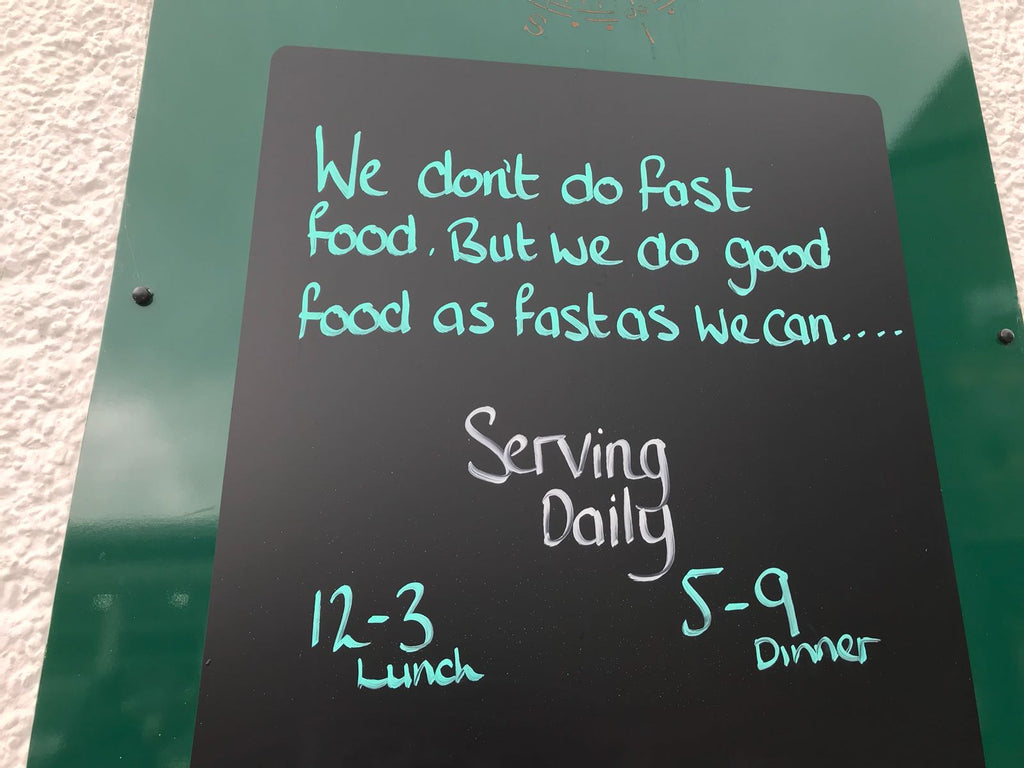 We don't do fast
food. But we do good
food as fast as we can....
Serving
Daily
12-3
Lunch
5-9
Dinner